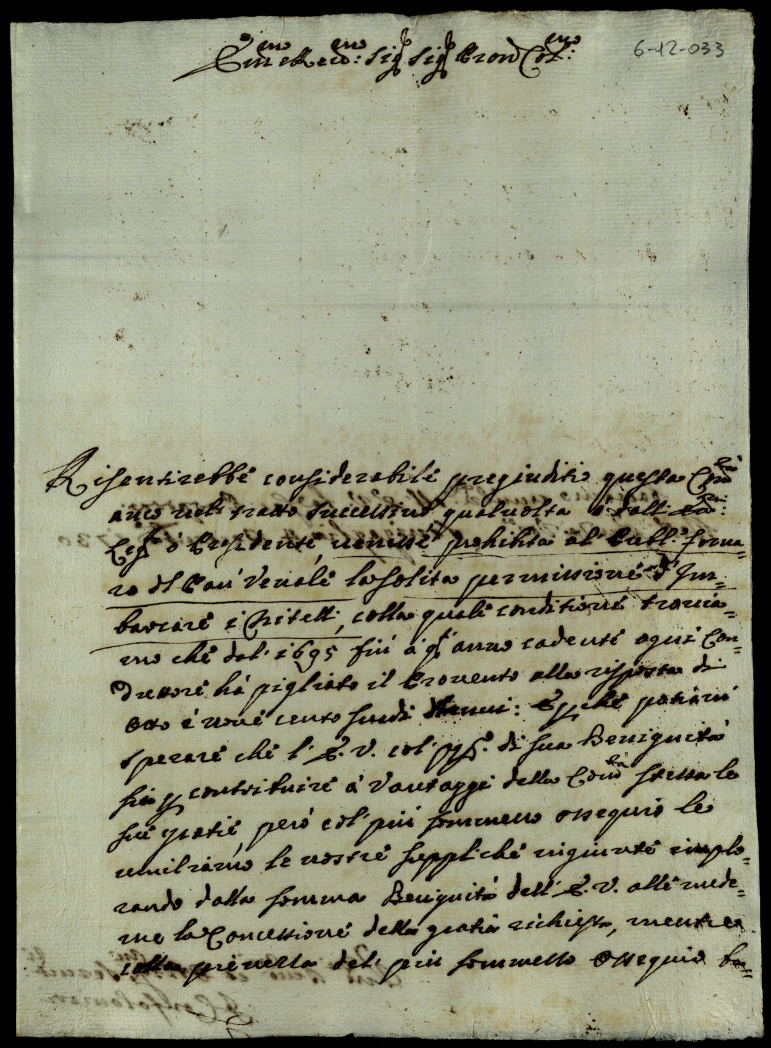 6-12-033
Em.mo e Re.mo Sig.r Sig.r Pron Col.mo
Risentirebbe considerabile pregiuditio questa Com.tà
anco nel tratto successivo qualvolta o dall' Em.
Leg. o Presidente venisse prohibita al Publ. forna=
ro del Pan Venale la solita permissione d' Im=
bascare i Chitelli, colla quale conditione trovia=
mo che dal 1695 fin a q.sto anno cadente ogni Con=
duttore hà pigliato il Provento alla risposta di
otto e nove cento scudi annui: E p. che potiamo
sperare che l' E. V. col di sua Benignità
sia p contribuire à Vantaggi della Com.tà stessa le
sue gratie, però col più sommesso ossequio le
umiliamo le nostre suppliche ingiunte implo=
rando dalla somma Benignità dell' E. V. alle mede=
me la Concessione della gratia richiesta, mentre
colla del più sommesso ossequio ba=